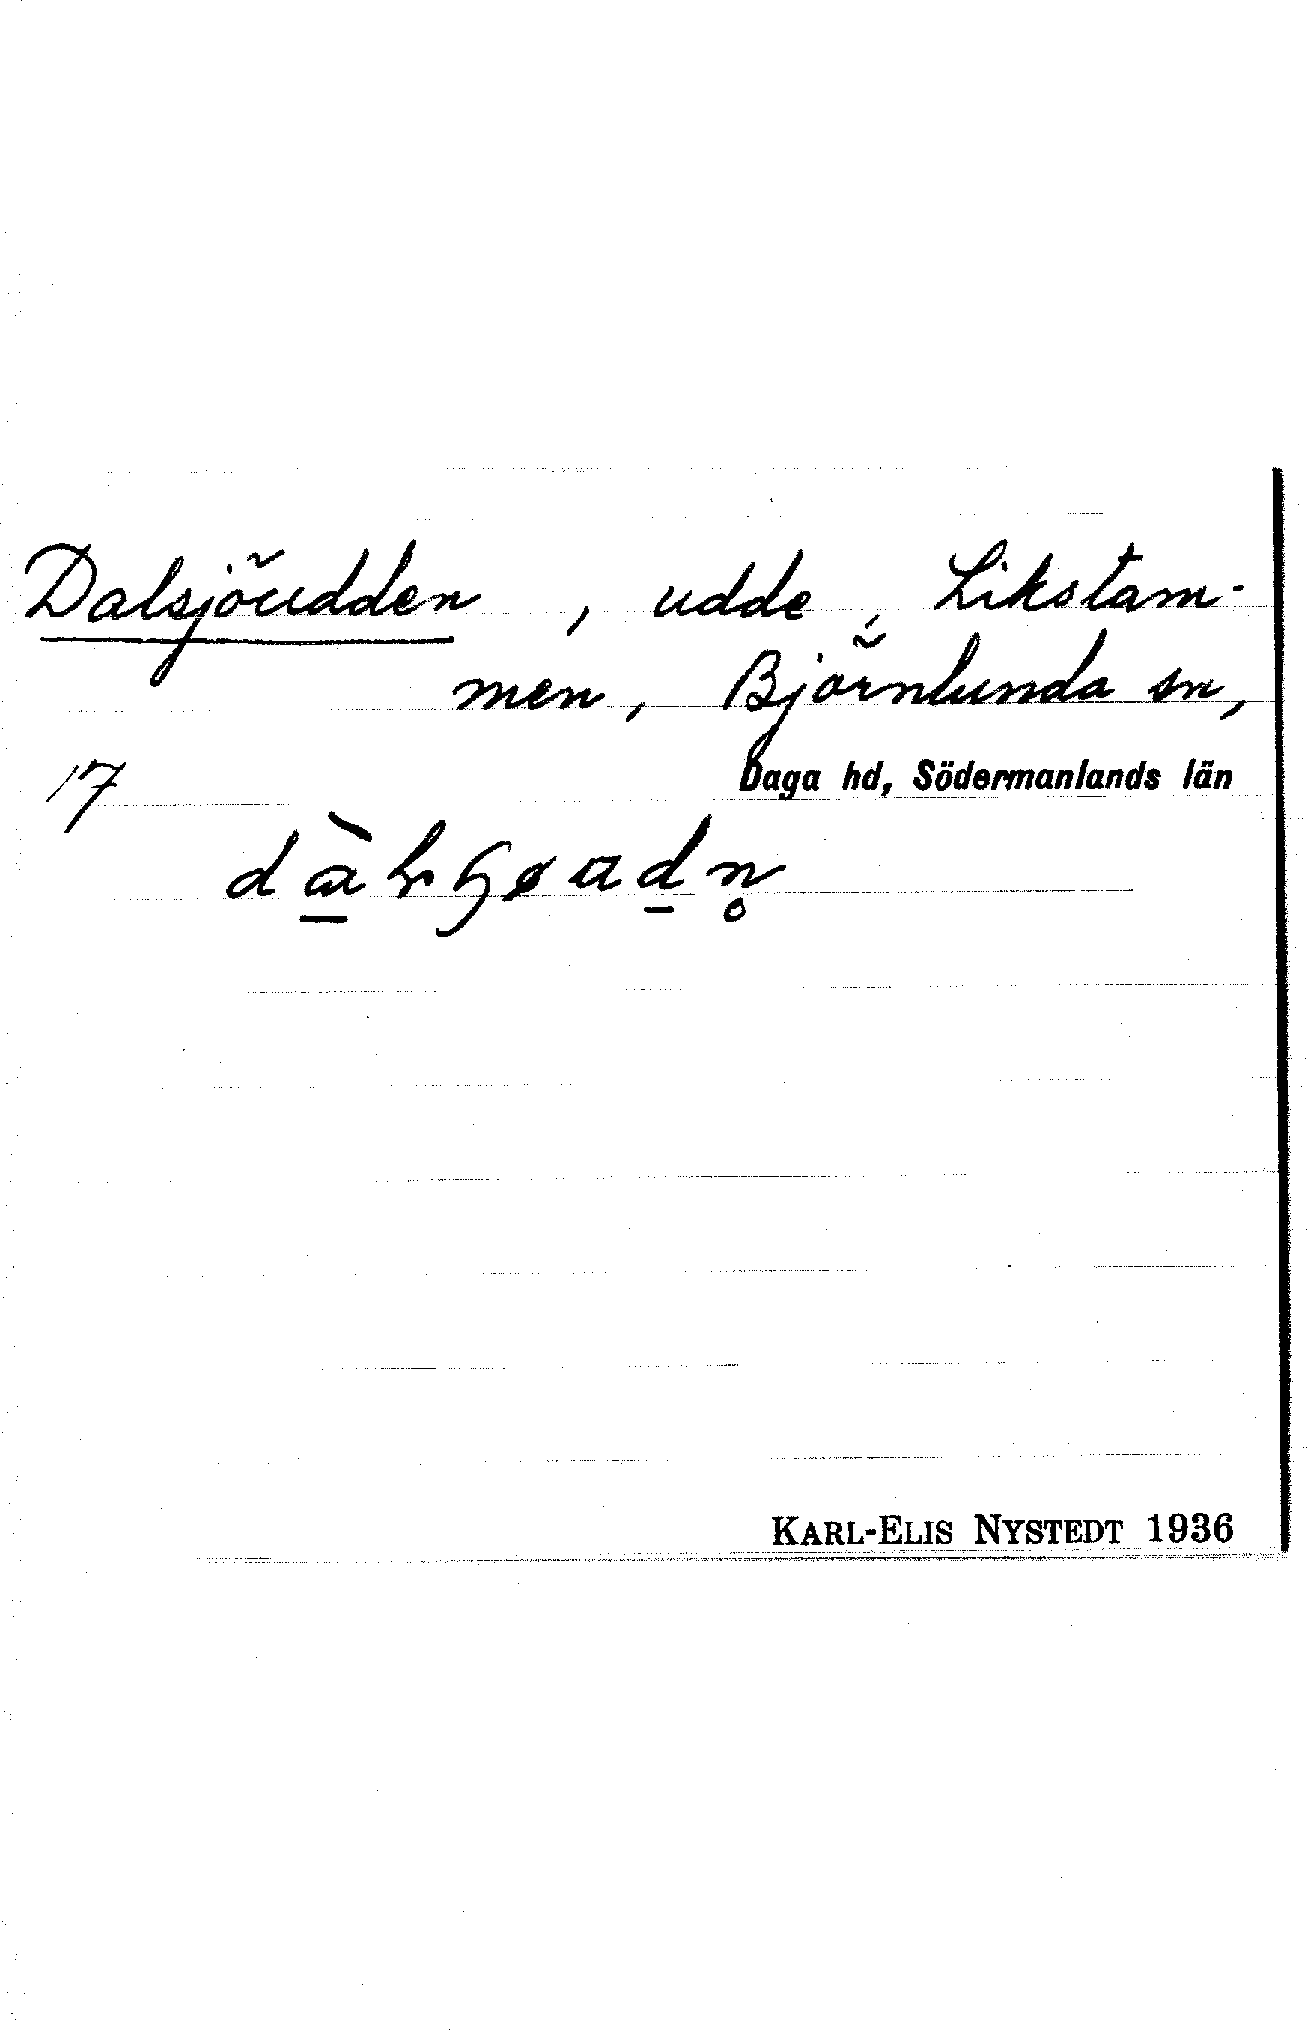 Dalsjöudden, udde, Likstam-
men, Björnlunda sn,
17
Daga hd, Södermanlands län
KARL-ELIS NYSTEDT 1936